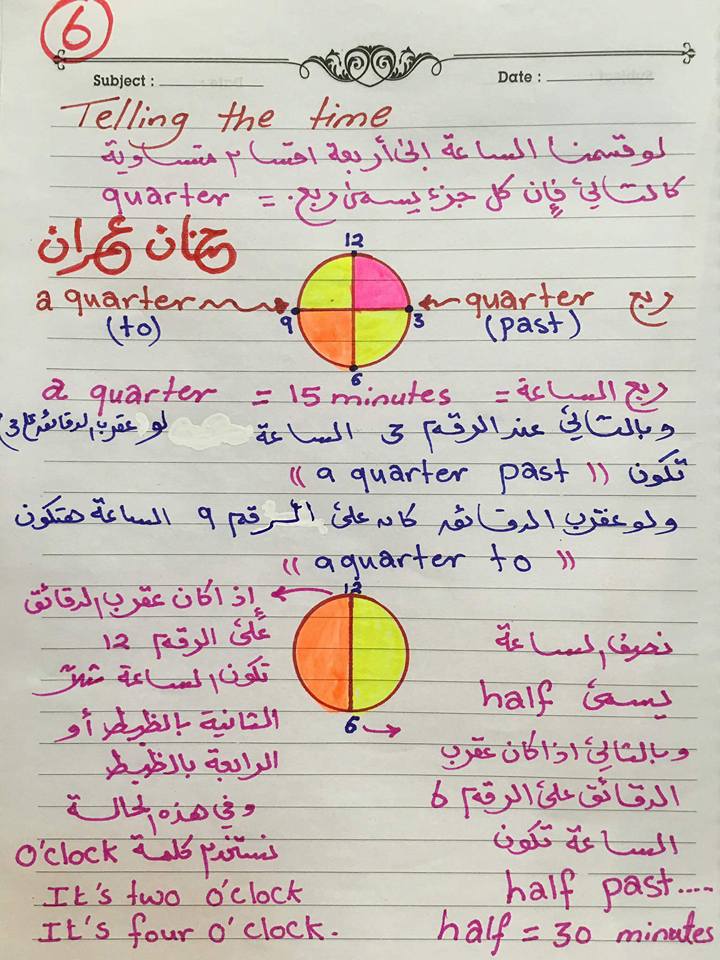 6
Subject :
Date :
Telling the time
لو قسمنا الساعة الى أربعة اقسام متساوية
كالتالي فإن كل جزء يسمى ربع. = quarter
حنان عمران
12
a quarter
(to)
9
3
quarter ربع
(past)
6
a quarter = 15 minutes = ربع الساعة
وبالتالي عند الرقم 3 الساعة لو عقرب الدقائق على (3)
تكون (( a quarter past ))
ولو عقرب الدقائق كان على الرقم 9 الساعة هتكون
(( a quarter to ))
12
6
إذا كان عقرب الدقائق
على الرقم 12
تكون الساعة مثلا
الثانية بالظبط أو
الرابعة بالظبط
وفي هذه الحالة
نستخدم كلمة O'clock
It's two o'clock
It's four o'clock.
نصف الساعة
يسمى half
وبالتالي اذا كان عقرب
الدقائق على الرقم 6
الساعة تكون
half past....
half = 30 minutes